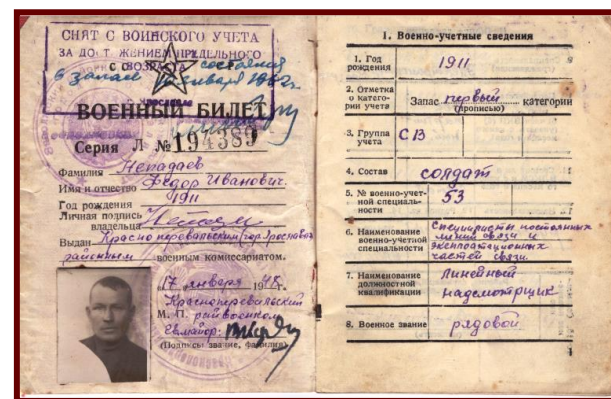 СНЯТ С ВОИНСКОГО УЧЕТА
ЗА ДОСТ ЖЕНИЕМ ПРЕДЕЛЬНОГО
ВОЗРАСТА состояния
в запасе января
ВОЕННЫЙ БИЛЕТ
Серия Л № 194389
Фамилия Непадаев
Имя и отчество Федор Иванович.
Год рождения 1911
Личная подпись
владельца
Выдан Красно перевальским гор. Ярославля
районным военным комиссариатом.
17 января 1948 г.
Красноперевальский
М. П. райвоенком
майор:
(Подпись, звание, фамилия)
1. Военно-учетные сведения
1. Год рождения 1911
2. Отметка о категории учета Запас первой категории
(прописью)
3. Группа учета СВ
4. Состав солдат
5. № военно-учетной специальности 53
6. Наименование военно-учетной специальности Специалисты постоянных
линий связи и
эксплоатационных
частей связи
7. Наименование должностной квалификации Линейный
надсмотрщик
8. Военное звание рядовой